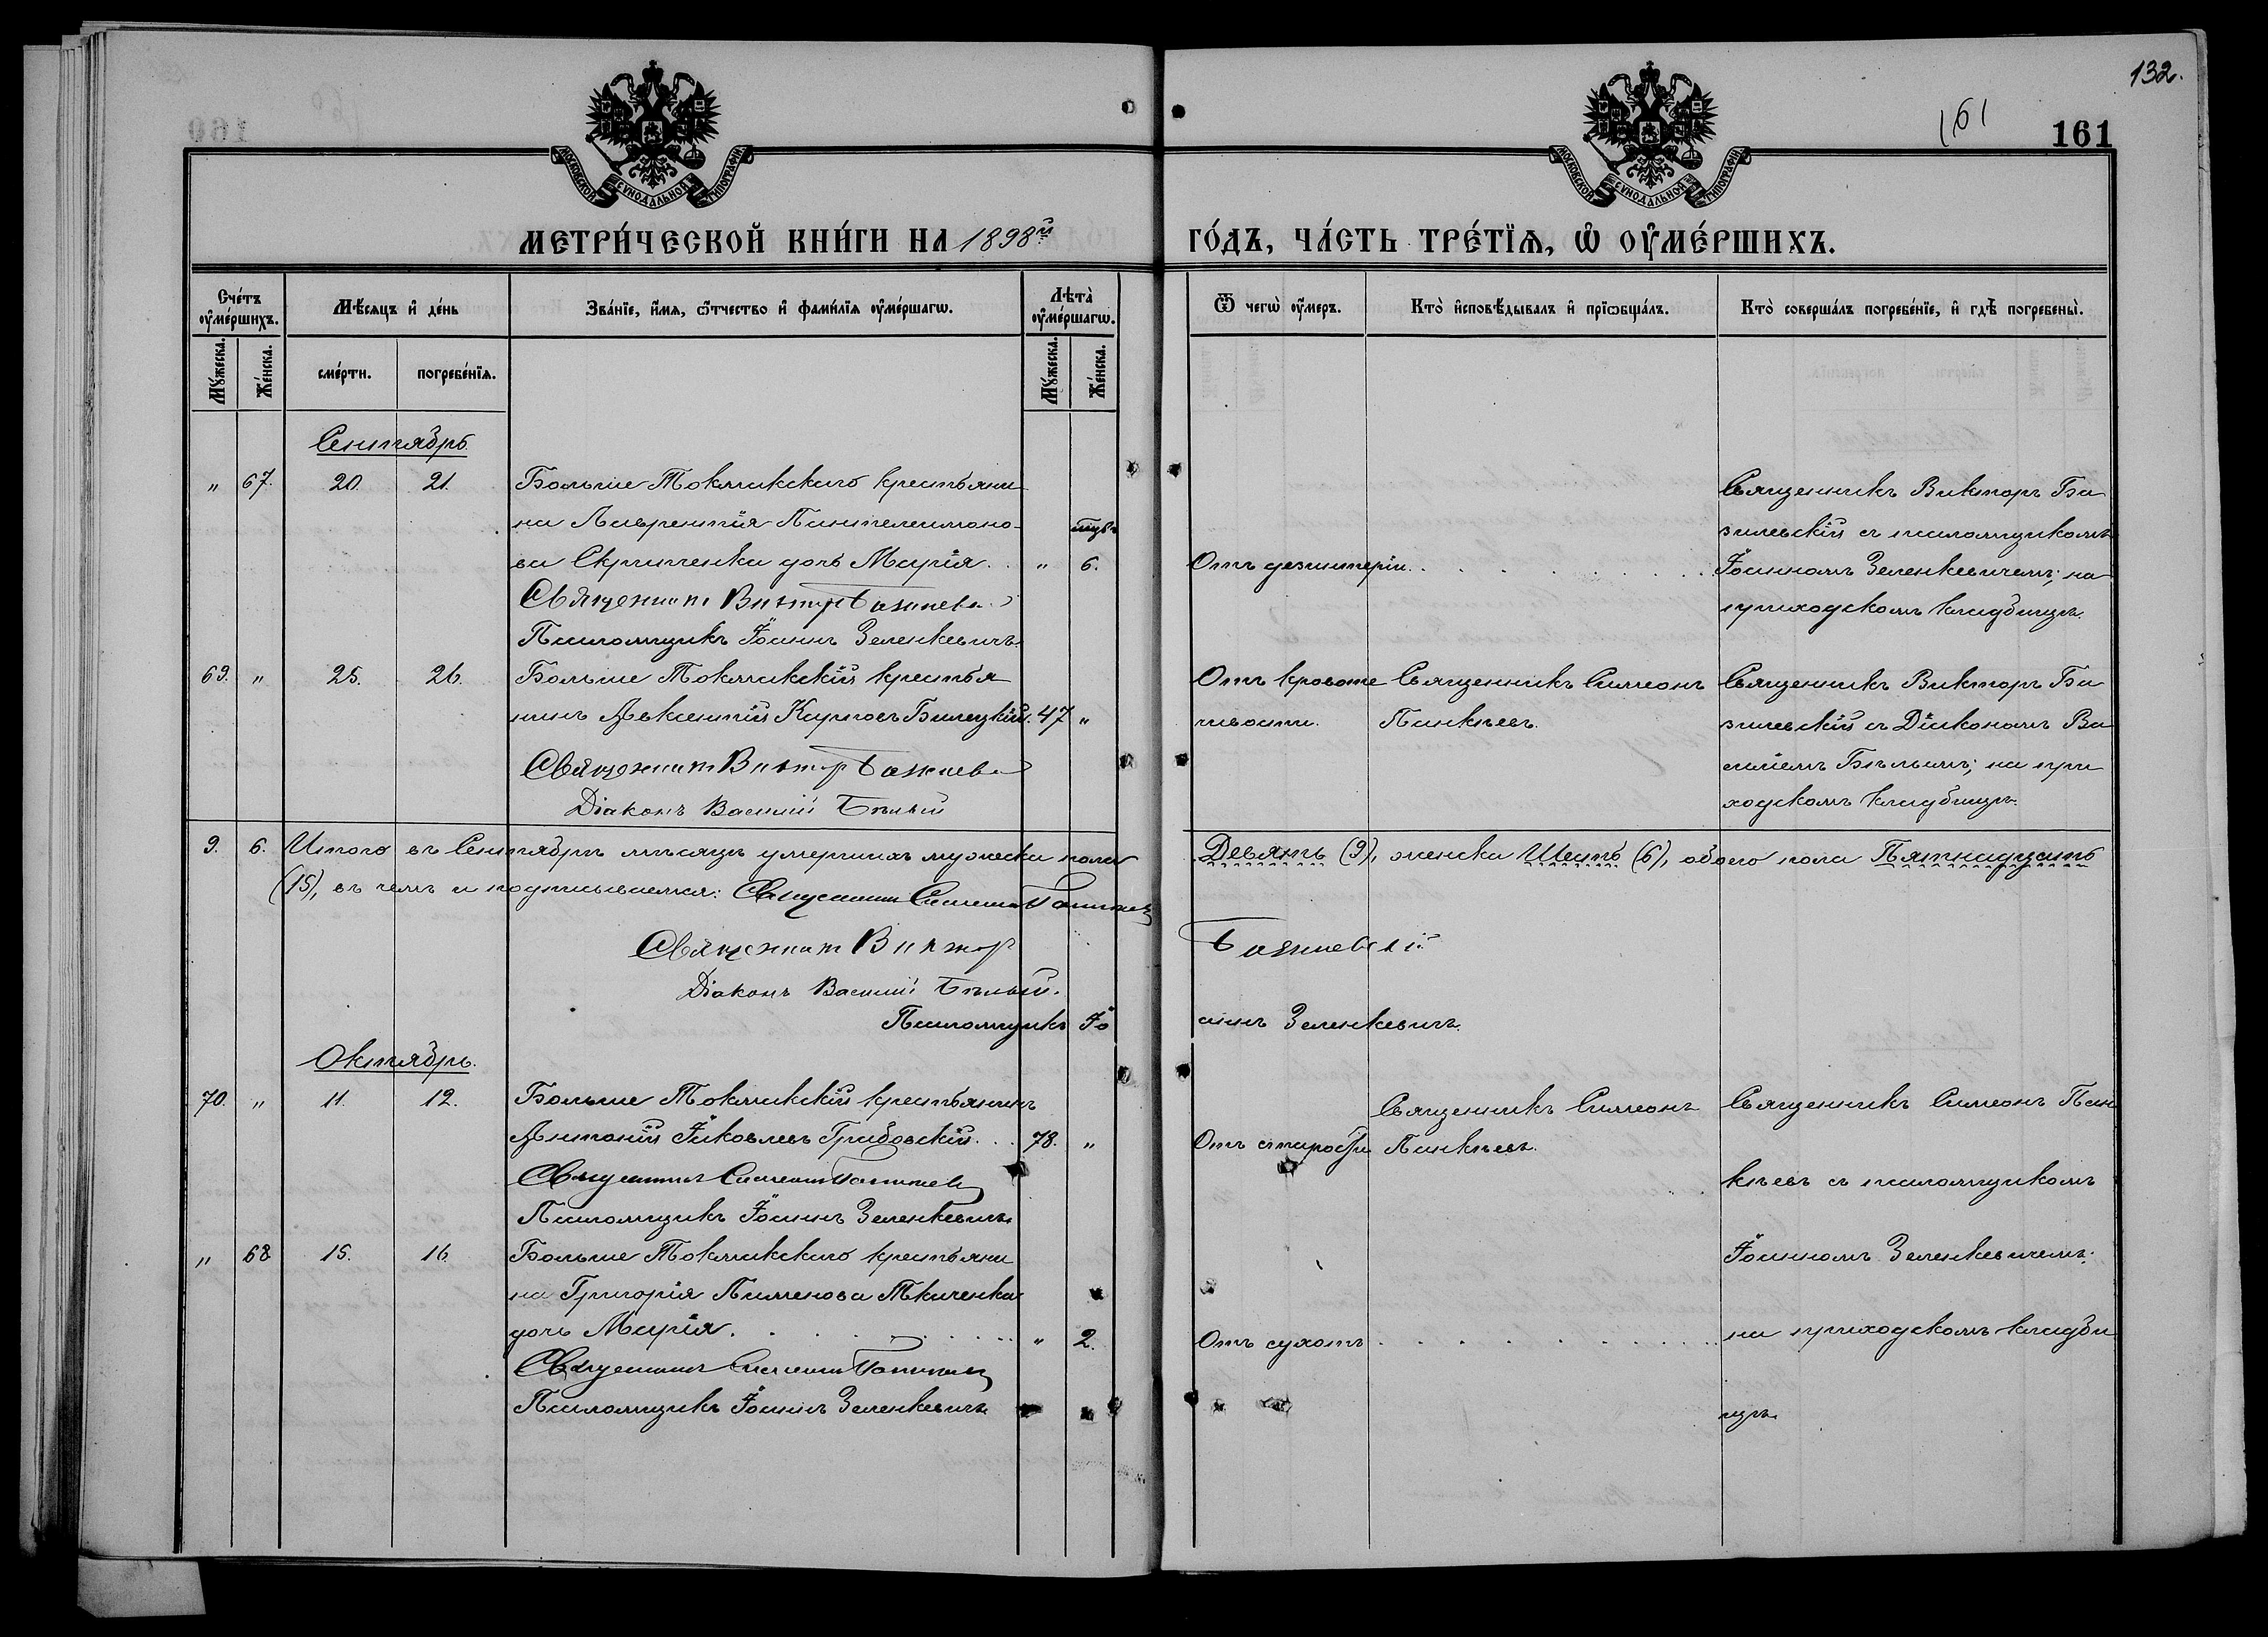 132.
161
161
160
МОСКОВСКОЙ СѴНОДАЛЬНОЙ ТИПОГРАФІИ
МОСКОВСКОЙ СѴНОДАЛЬНОЙ ТИПОГРАФІИ
МЕТРИ́ЧЕСКОЙ КНИ́ГИ НА 1898й
ГО́ДЪ, ЧА́СТЬ ТРЕ́ТЇѦ, Ѽ ОУ҆МЕ́РШИХЪ.
Сче́тъ оу҆ме́ршихъ.
Мѣ́сяцъ и҆ де́нь
Зва́нїе, и҆́мя, ѻ҆́тчество и҆ фами́лїя оу҆ме́ршагѡ.
Лѣта̀ оу҆ме́ршагѡ.
Ѿ чегѡ̀ оу҆́меръ.
Кто̀ и҆сповѣ́дывалъ и҆ прїѡбща́лъ.
Кто̀ соверша́лъ погребе́нїе, и҆ гдѣ̀ погребены̀.
Му́жеска.
Же́нска.
сме́рти.
погребе́нїя.
Му́жеска.
Же́нска.
Сентябрь.
" 67. 20. 21. Больше Токмакскаго крестьяни
на Лаврентія Пантелеимоно-
ва Скрипченка дочь Марія. " 6.
Священникъ Викторъ Базилевс
Псаломщикъ Іоаннъ Зеленкевичъ.
Отъ дезинтеріи.
Священникъ Викторъ Ба
зилевскій съ псаломщикомъ
Іоанномъ Зеленкевичемъ; на
приходскомъ кладбищѣ.
69. " 25. 26. Больше Токмакскій крестья
нинъ Авксентій Карповъ Билецкій. 47 "
Священникъ Викторъ Базилевс
Діаконъ Василій Бѣлый
Отъ кровоте
чивости.
Священникъ Симеонъ
Панкѣевъ.
Священникъ Викторъ Ба
зилевскій съ Діакономъ Ва
силіемъ Бѣлымъ; на при
ходскомъ кладбищѣ.
9. 6. Итого въ Сентябрѣ мѣсяцѣ умершихъ мужеска пола Девять (9), женска Шесть (6), обоего пола Пятнадцать
(15), въ чемъ и подписываемся: Священникъ Симеонъ Панкѣевъ
Священникъ Викторъ Базилевскій
Діаконъ Василій Бѣлый.
Псаломщикъ Іо аннъ Зеленкевичъ.
Октябрь.
70. " 11. 12. Больше Токмакскій крестьянинъ
Антоній Іаковлевъ Грабовскій. 78. "
Священникъ Симеонъ Панкѣевъ
Псаломщикъ Іоаннъ Зеленкевичъ.
Отъ старости
Священникъ Симеонъ
Панкѣевъ.
Священникъ Симеонъ Пан
кѣевъ съ псаломщикомъ
" 68 15. 16. Больше Токмакскаго крестьяни
на Григорія Пименова Ткаченка
дочь Марія. " 2.
Священникъ Симеонъ Панкѣевъ
Псаломщикъ Іоаннъ Зеленкевичъ.
Отъ сухотъ
Іоанномъ Зеленкевичемъ;
на приходскомъ кладби
щѣ.